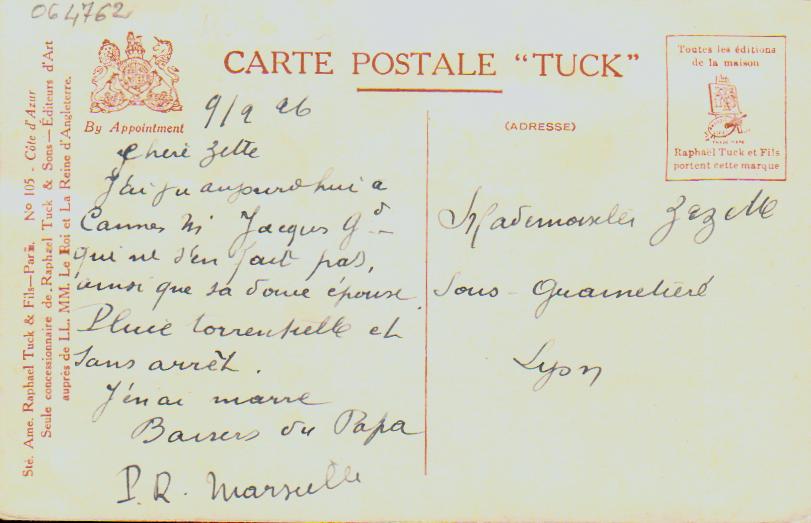 064762
CARTE POSTALE "TUCK"
By Appointment
Toutes les éditions
de la maison
Raphaël Tuck et Fils
portent cette marque
(ADRESSE)
Sté. Ame. Raphael Tuck & Fils—Paris. No 105 - Côte d'Azur
Seule concessionnaire de Raphael Tuck & Sons—Éditeurs d'Art
auprès de LL. MM. Le Roi et La Reine d'Angleterre.
9/9 26
Chère Zette
J'ai vu aujourd'hui a
Cannes Jacques Gd
qui ne s'en fait pas,
ainsi que sa douce épouse
Pluie torrentielle et
sans arrêt.
J'en ai marre
Baisers du Papa
P.R. Marseille
Mademoiselle Zezette
Sous
Lyon